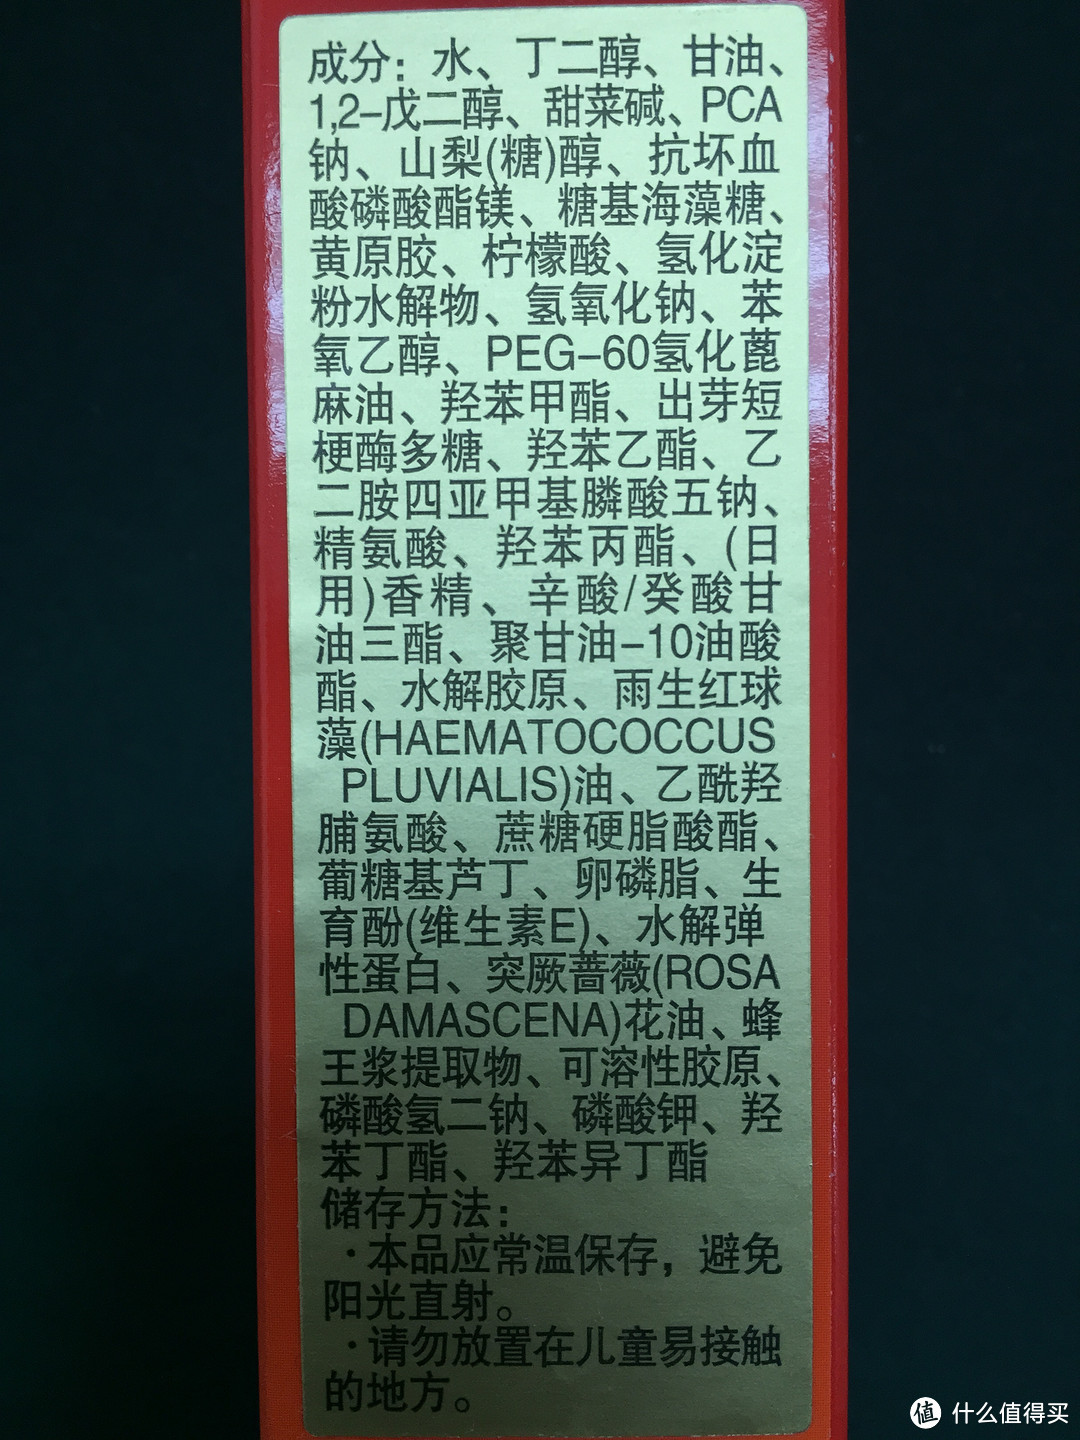 成分：水、丁二醇、甘油、
1,2-戊二醇、甜菜碱、PCA
钠、山梨(糖)醇、抗坏血
酸磷酸酯镁、糖基海藻糖、
黄原胶、柠檬酸、氢化淀
粉水解物、氢氧化钠、苯
氧乙醇、PEG-60氢化蓖
麻油、羟苯甲酯、出芽短
梗酶多糖、羟苯乙酯、乙
二胺四亚甲基膦酸五钠、
精氨酸、羟苯丙酯、(日
用)香精、辛酸/癸酸甘
油三酯、聚甘油-10油酸
酯、水解胶原、雨生红球
藻(HAEMATOCOCCUS
PLUVIALIS)油、乙酰羟
脯氨酸、蔗糖硬脂酸酯、
葡糖基芦丁、卵磷脂、生
育酚(维生素E)、水解弹
性蛋白、突厥蔷薇(ROSA
DAMASCENA)花油、蜂
王浆提取物、可溶性胶原、
磷酸氢二钠、磷酸钾、羟
苯丁酯、羟苯异丁酯
储存方法：
·本品应常温保存，避免
阳光直射。
·请勿放置在儿童易接触
的地方。
值 什么值得买